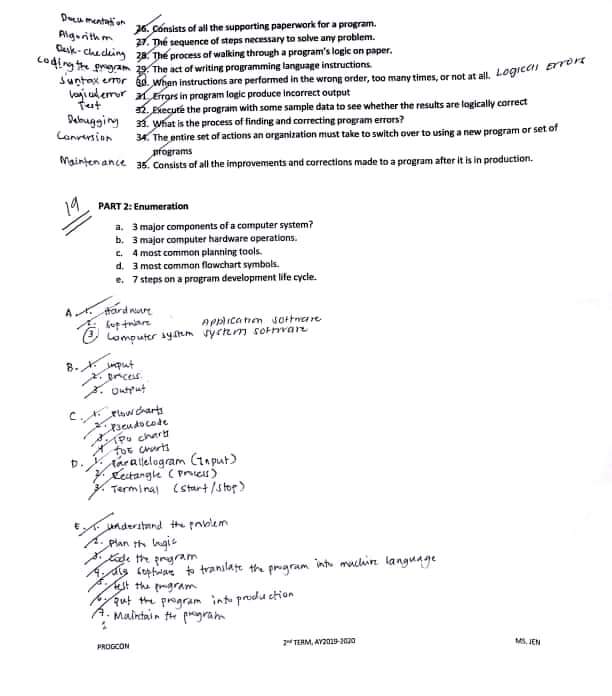 Documentation 26. Consists of all the supporting paperwork for a program.
Algorithm 27. The sequence of steps necessary to solve any problem.
Desk-checking 28. The process of walking through a program's logic on paper.
coding the program 29. The act of writing programming language instructions.
Syntax error 30. When instructions are performed in the wrong order, too many times, or not at all. Logical Errors
logical error 31. Errors in program logic produce incorrect output
Test 32. Execute the program with some sample data to see whether the results are logically correct
Debugging 33. What is the process of finding and correcting program errors?
Conversion 34. The entire set of actions an organization must take to switch over to using a new program or set of
programs
Maintenance 35. Consists of all the improvements and corrections made to a program after it is in production.
19 PART 2: Enumeration
a. 3 major components of a computer system?
b. 3 major computer hardware operations.
c. 4 most common planning tools.
d. 3 most common flowchart symbols.
e. 7 steps on a program development life cycle.
A. 1. Hardware
2. Software Application software
3. Computer system system software
B. 1. input
2. process
3. Output
C. 1. Flowcharts
2. Pseudocode
3. IPO charts
4 TOE charts
D. 1. Parallelogram (Input)
2. Rectangle (Process)
3. Terminal (start/stop)
E. 1. understand the problem
2. Plan th logic
3. Code the program
4. use software to translate the program into machine language
5. test the program
6. put the program into production
7. Maintain the program
PROGCON 2nd TERM, AY2019-2020 MS. JEN